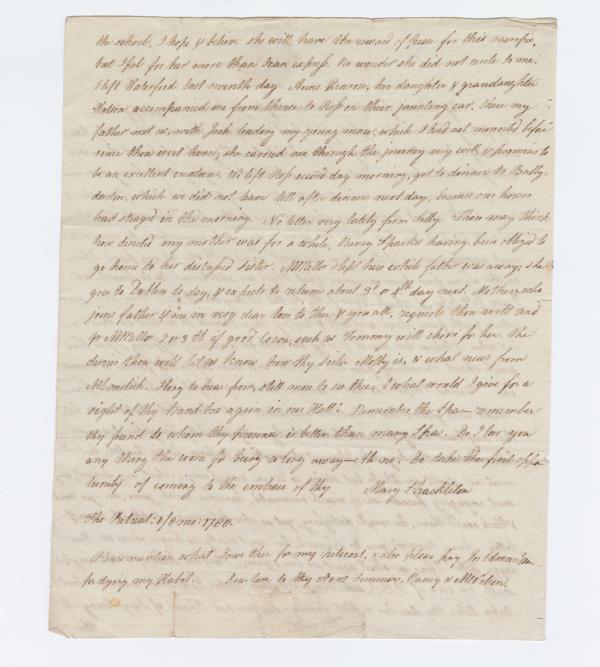 the school, I hope & believe she will have the reward of peace for this sacrifice,
but I feel for her more than I can express. No wonder she did not write to me.
I left Waterford last seventh day. Anne Pearson, her daughter & grandaughter
Watson accompanied me from thence to Ross on their jaunting car, there my
father met us, with Jack leading my young mare, which I had not mounted before
since thou went hence; she carried me through the journey very well, & promises to
be an excellent creature. We left Ross second day morning, got to dinner to Bally-
darton, which we did not leave till after dinner next day, because our horses
had strayed in the morning. No letter very lately from Sally. Thou may think
how divested my mother was for a while, Nancy Sparkes having been obliged to
go home to her diseased sister. M Mellor kept here while father was away; she
goes to Dublin to day, & expects to return about 3d or 4th day next. Mother, who
joins father & me in very dear love to thee & you all, requests thou will send
p M Mellor 2 or 3 lb of good Cocoa, such as Tommy will chuse for her. She
desires thou will let us know how thy sister Molly is, & what news from
I long to hear from, still more to see thee. O what would I give for a
sight of thy band box again in our Hall! Remember the Spa — remember
thy friend to whom thy presence is better than many Spas. Do I love you
any thing the worse for being so long away — th me. Do take the first oppor
tunity of coming to the embrace of thy Mary Shackleton
The Retreat: 1/8 mo: 1788.
Please mention what I owe thee for my &c also please pay
for dying my Habit. Dear love to thy Nancy &